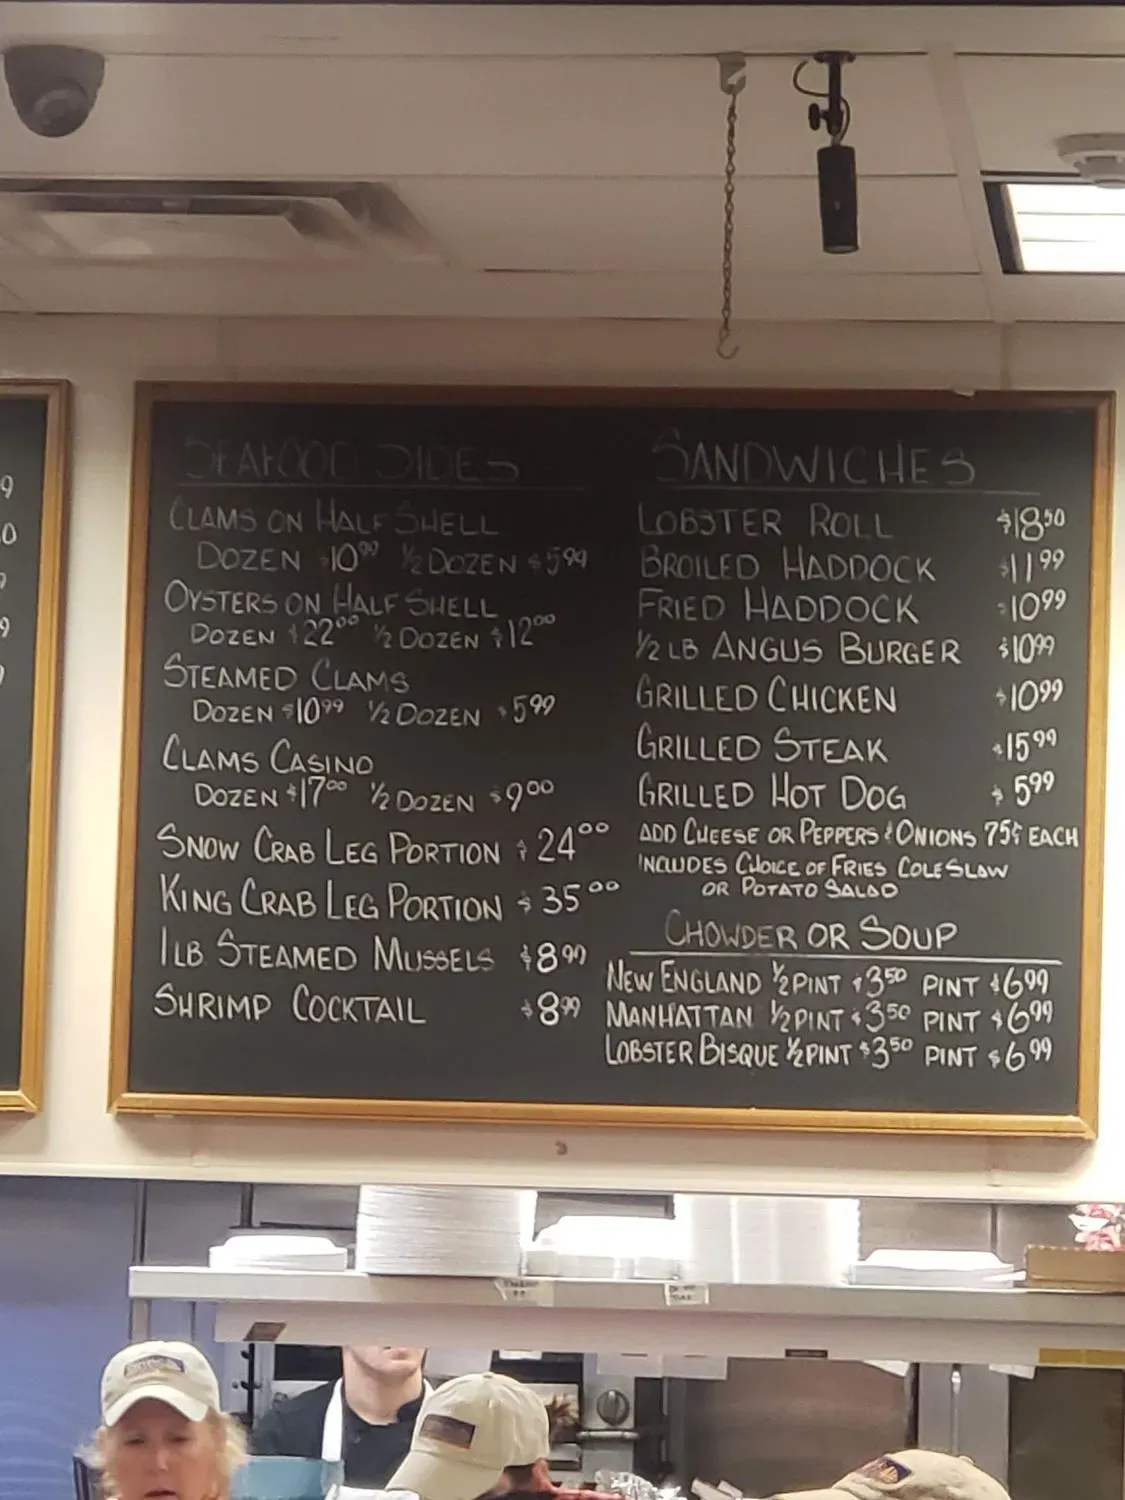 SEAFOOD SIDES
CLAMS ON HALF SHELL
DOZEN $10⁹⁹ ½ DOZEN $5.99
OYSTERS ON HALF SHELL
DOZEN $22⁰⁰ ½ DOZEN $12⁰⁰
STEAMED CLAMS
DOZEN $10⁹⁹ ½ DOZEN $5⁹⁹
CLAMS CASINO
DOZEN $17⁰⁰ ½ DOZEN $9⁰⁰
SNOW CRAB LEG PORTION $24⁰⁰
KING CRAB LEG PORTION $35⁰⁰
1 LB STEAMED MUSSELS $8⁹⁹
SHRIMP COCKTAIL $8⁹⁹
SANDWICHES
LOBSTER ROLL $18⁵⁰
BROILED HADDOCK $11⁹⁹
FRIED HADDOCK $10⁹⁹
½ LB ANGUS BURGER $10⁹⁹
GRILLED CHICKEN $10⁹⁹
GRILLED STEAK $15⁹⁹
GRILLED HOT DOG $5⁹⁹
ADD CHEESE OR PEPPERS & ONIONS 75¢ EACH
INCLUDES CHOICE OF FRIES COLE SLAW
OR POTATO SALAD
CHOWDER OR SOUP
NEW ENGLAND ½ PINT $3⁵⁰ PINT $6⁹⁹
MANHATTAN ½ PINT $3⁵⁰ PINT $6⁹⁹
LOBSTER BISQUE ½ PINT $3⁵⁰ PINT $6⁹⁹